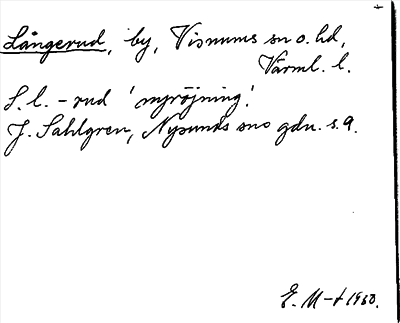 Långerud, by, Visnums sn o. hd,
Värml. l.
S. l. - rud 'nyröjning'.
J. Sahlgren, Nysunds sns gdn. s. 9.
E. M-t 1960.